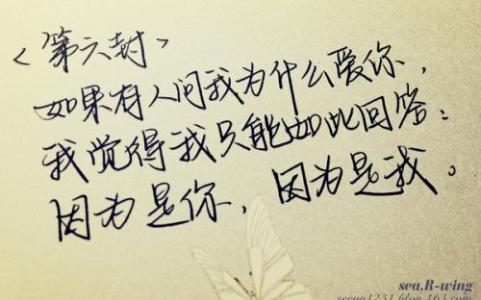 <第六封>
如果有人问我为什么爱你，
我觉得我只能如此回答：
因为是你，因为是我。
sea.R-wing